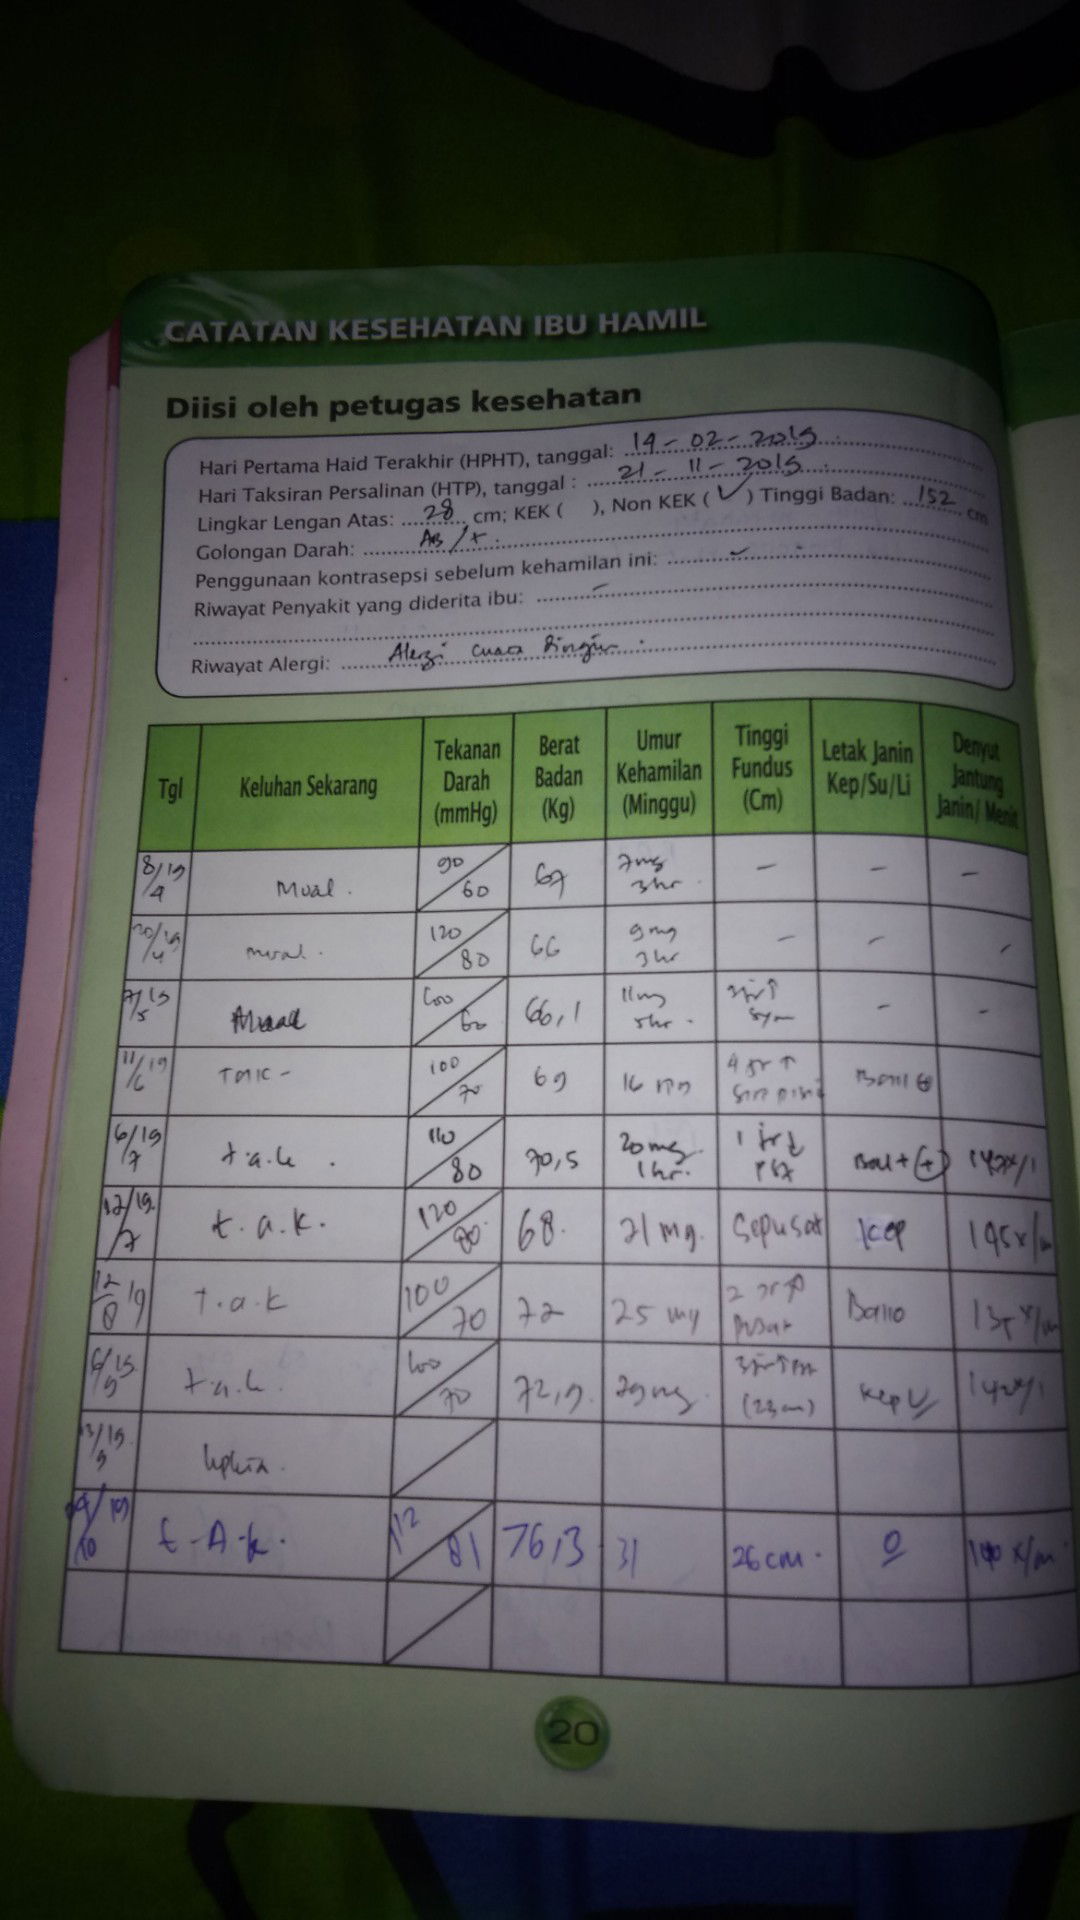 CATATAN KESEHATAN IBU HAMIL
Diisi oleh petugas kesehatan
Hari Pertama Haid Terakhir (HPHT), tanggal: 14-02-2019
Hari Taksiran Persalinan (HTP), tanggal : 21-11-2019
Lingkar Lengan Atas: 28 cm; KEK ( ), Non KEK ( ✓ ) Tinggi Badan: 152 cm
Golongan Darah: AB/+
Penggunaan kontrasepsi sebelum kehamilan ini: -
Riwayat Penyakit yang diderita ibu: -
Riwayat Alergi: Alergi cuaca dingin
Tgl Keluhan Sekarang Tekanan Darah (mmHg) Berat Badan (Kg) Umur Kehamilan (Minggu) Tinggi Fundus (Cm) Letak Janin Kep/Su/Li Denyut Jantung Janin/ Menit
8/19/4 Mual. 90/60 67 7mg 3hr - - -
20/19/4 mual. 120/80 66 9mg 3hr - - -
7/19/5 Mual 100/60 66,1 11mg 5hr - -
11/19/6 100/70 69 16 Ball +
6/19/7 t.a.k. 110/80 70,5 20mg 1hr. Ball + (+)
12/19/7 t.a.k. 120/80 68. 21 mg. Sepusat kep 145x/m
12/19/8 T.a.k 100/70 72 25 mg pusat
6/19/9 t.a.k. 100/70 72,9. 29mg (23cm) kep U
13/19/9
24/19/10 t-A-k. 112/81 76,3 31 26cm. 140x/m
20